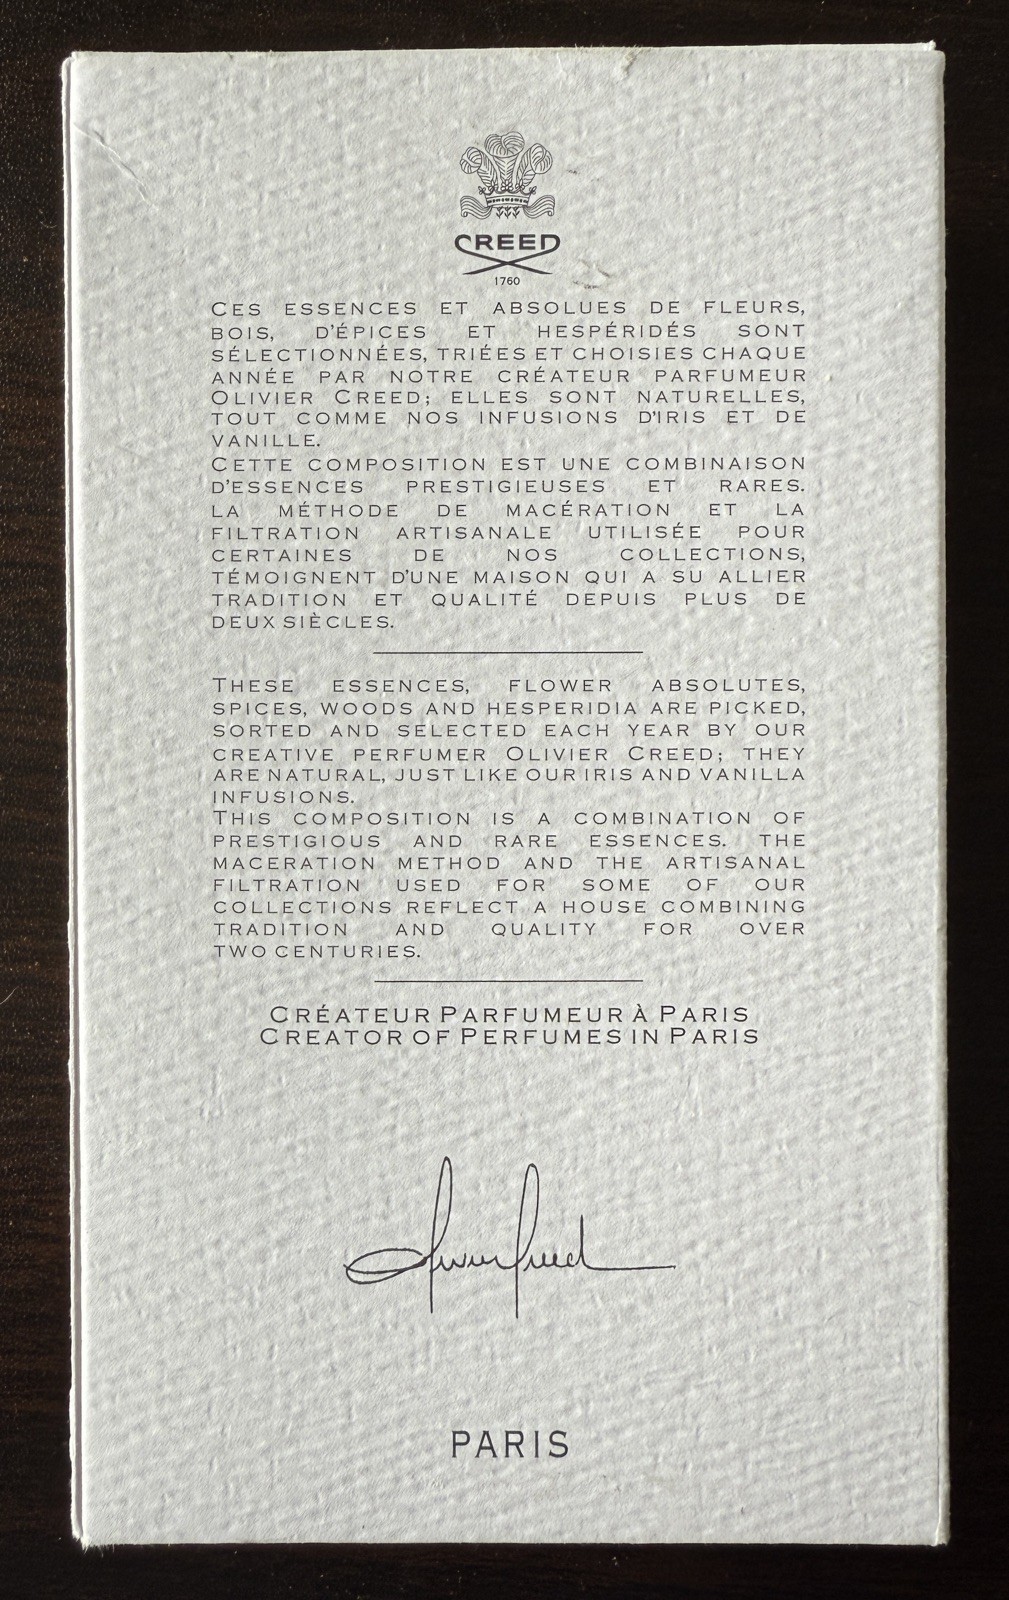 CREED
1760
CES ESSENCES ET ABSOLUES DE FLEURS,
BOIS, D'ÉPICES ET HESPÉRIDÉS SONT
SÉLECTIONNÉES, TRIÉES ET CHOISIES CHAQUE
ANNÉE PAR NOTRE CRÉATEUR PARFUMEUR
OLIVIER CREED; ELLES SONT NATURELLES,
TOUT COMME NOS INFUSIONS D'IRIS ET DE
VANILLE.
CETTE COMPOSITION EST UNE COMBINAISON
D'ESSENCES PRESTIGIEUSES ET RARES.
LA MÉTHODE DE MACÉRATION ET LA
FILTRATION ARTISANALE UTILISÉE POUR
CERTAINES DE NOS COLLECTIONS,
TÉMOIGNENT D'UNE MAISON QUI A SU ALLIER
TRADITION ET QUALITÉ DEPUIS PLUS DE
DEUX SIÈCLES.
THESE ESSENCES, FLOWER ABSOLUTES,
SPICES, WOODS AND HESPERIDIA ARE PICKED,
SORTED AND SELECTED EACH YEAR BY OUR
CREATIVE PERFUMER OLIVIER CREED; THEY
ARE NATURAL, JUST LIKE OUR IRIS AND VANILLA
INFUSIONS.
THIS COMPOSITION IS A COMBINATION OF
PRESTIGIOUS AND RARE ESSENCES. THE
MACERATION METHOD AND THE ARTISANAL
FILTRATION USED FOR SOME OF OUR
COLLECTIONS REFLECT A HOUSE COMBINING
TRADITION AND QUALITY FOR OVER
TWO CENTURIES.
CRÉATEUR PARFUMEUR À PARIS
CREATOR OF PERFUMES IN PARIS
Olivier Creed
PARIS